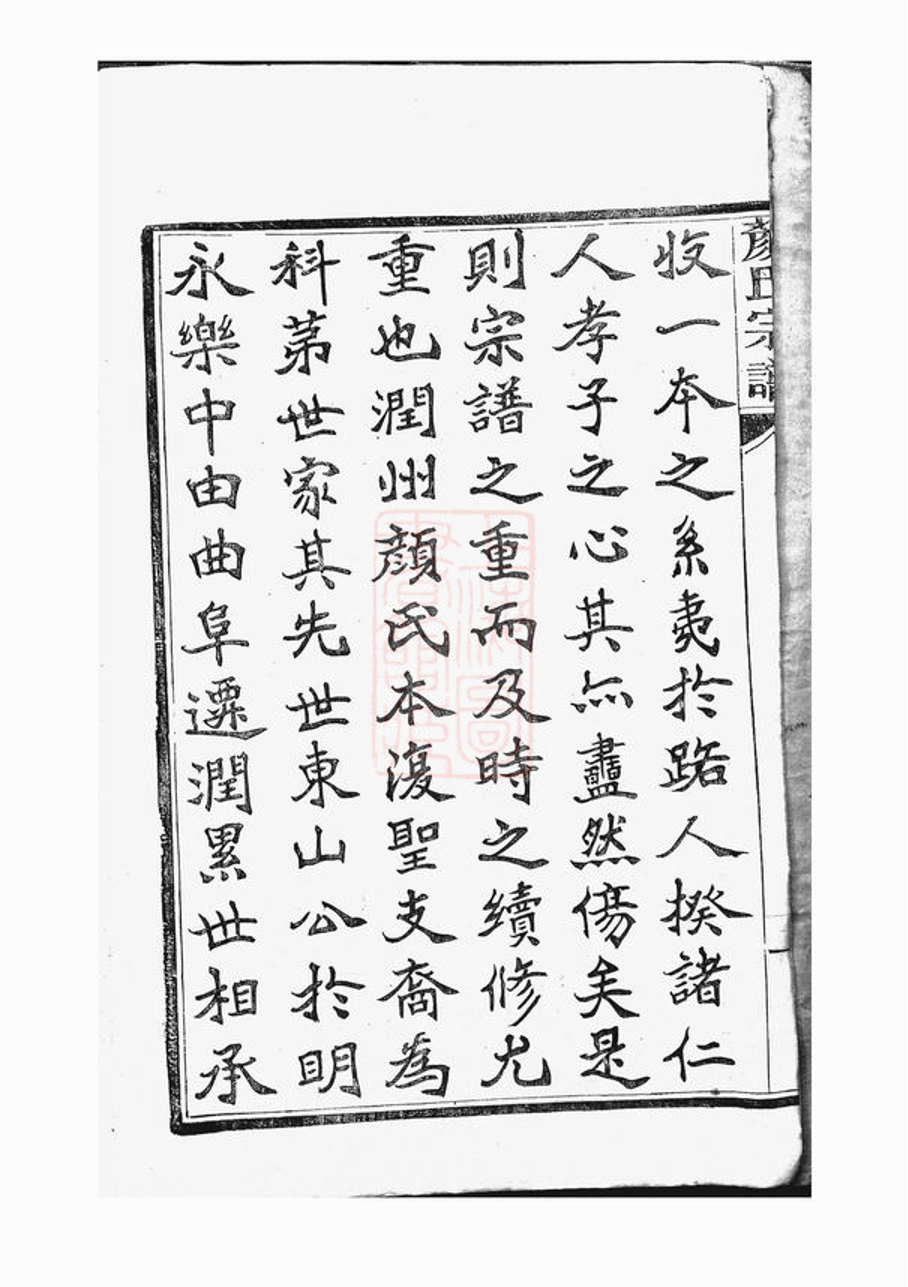 顏氏宗譜
收一本之系夷於路人揆諸仁
人孝子之心其亦衋然傷矣是
則宗譜之重而及時之續修尤
重也潤州顏氏本復聖支裔為
科第世家其先世東山公於明
永樂中由曲阜遷潤累世相承